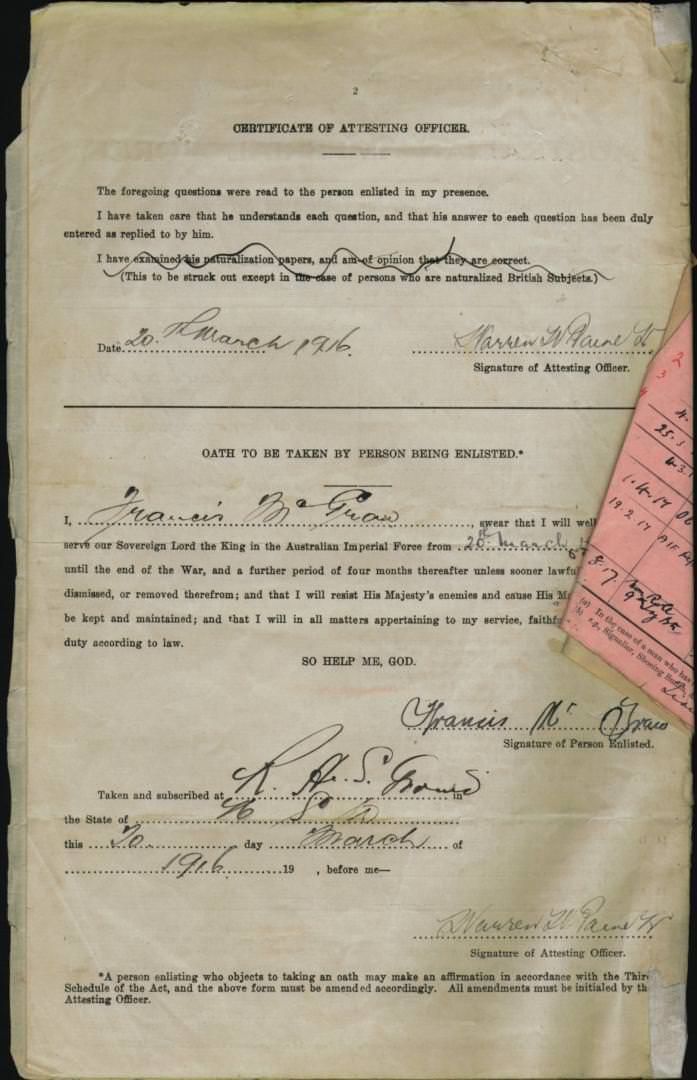 2
CERTIFICATE OF ATTESTING OFFICER.
The foregoing questions were read to the person enlisted in my presence.
I have taken care that he understands each question, and that his answer to each question has been duly
entered as replied to by him.
I have examined his naturalization papers, and am of opinion that they are correct.
(This to be struck out except in the case of persons who are naturalized British Subjects.)
Date 20th March 1916. Warren W Paine Lt
Signature of Attesting Officer.
OATH TO BE TAKEN BY PERSON BEING ENLISTED.*
I, Francis McGraw, swear that I will well
serve our Sovereign Lord the King in the Australian Imperial Force from 20th March
until the end of the War, and a further period of four months thereafter unless sooner lawful
dismissed, or removed therefrom; and that I will resist His Majesty's enemies and cause His M
be kept and maintained; and that I will in all matters appertaining to my service, faithf
duty according to law.
SO HELP ME, GOD.
Francis Mc Graw
Signature of Person Enlisted.
Taken and subscribed at R. A. S. in
the State of
this 20 day March of
1916 19 , before me—
Warren W Paine Lt
Signature of Attesting Officer.
*A person enlisting who objects to taking an oath may make an affirmation in accordance with the Third
Schedule of the Act, and the above form must be amended accordingly. All amendments must be initialed by th
Attesting Officer.
2
3
4
4.
25.
4.3.1
1.4.17
19.2.17
8.17
(a) In the case of a man who has
(b) e.g., Signaller, Shoeing